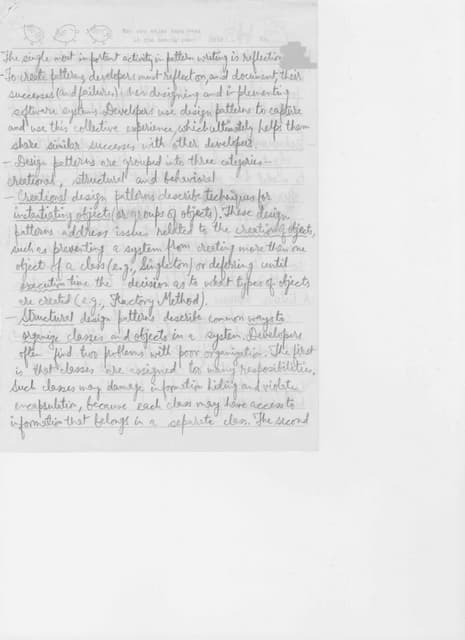 The single most important activity in pattern writing is reflection
- To create patterns, developers must reflect on, and document, their
successes (and failures) in designing and implementing
software systems. Developers use design patterns to capture
and use this collective experience, which ultimately helps them
share similar successes with other developers.
- Design patterns are grouped into three categories -
creational, structural and behavioral
- Creational design patterns describe techniques for
instantiating objects (or groups of objects). These design
patterns address issues related to the creation of objects,
such as preventing a system from creating more than one
object of a class (e.g., Singleton) or deferring until
execution time the decision as to what types of objects
are created (e.g., Factory Method).
- Structural design patterns describe common ways to
organize classes and objects in a system. Developers
often find two problems with poor organization. The first
is that classes are assigned too many responsibilities.
Such classes may damage information hiding and violate
encapsulation, because each class may have access to
information that belongs in a separate class. The second